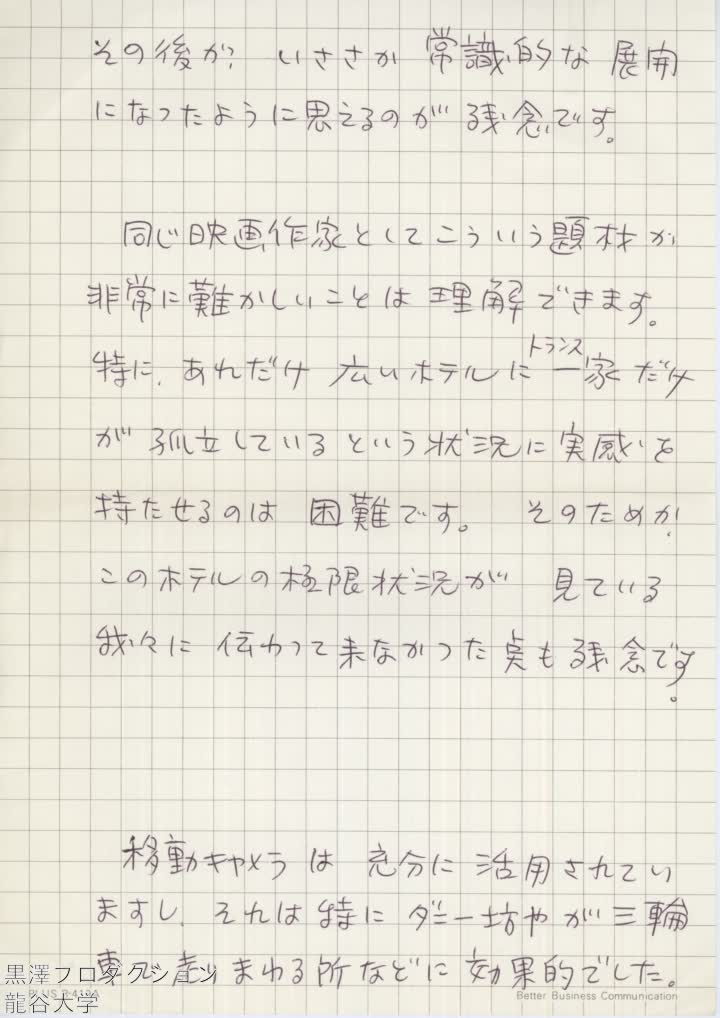 その後が いささか 常識的な 展開
になったように思えるのが 残念です。
同じ映画作家としてこういう題材が
非常に難かしいことは 理解できます。
特に、あれだけ 広いホテルに トランス一家だけ
が 孤立しているという状況に実感を
持たせるのは 困難です。 そのためか
このホテルの極限状況が 見ている
我々に 伝わって来なかった点も残念です
。
移動キャメラは 充分に 活用されてい
ますし、それは特に ダニー坊やが三輪
車で走りまわる所などに 効果的でした。
黒澤プロダクション
龍谷大学
Better Business Communication